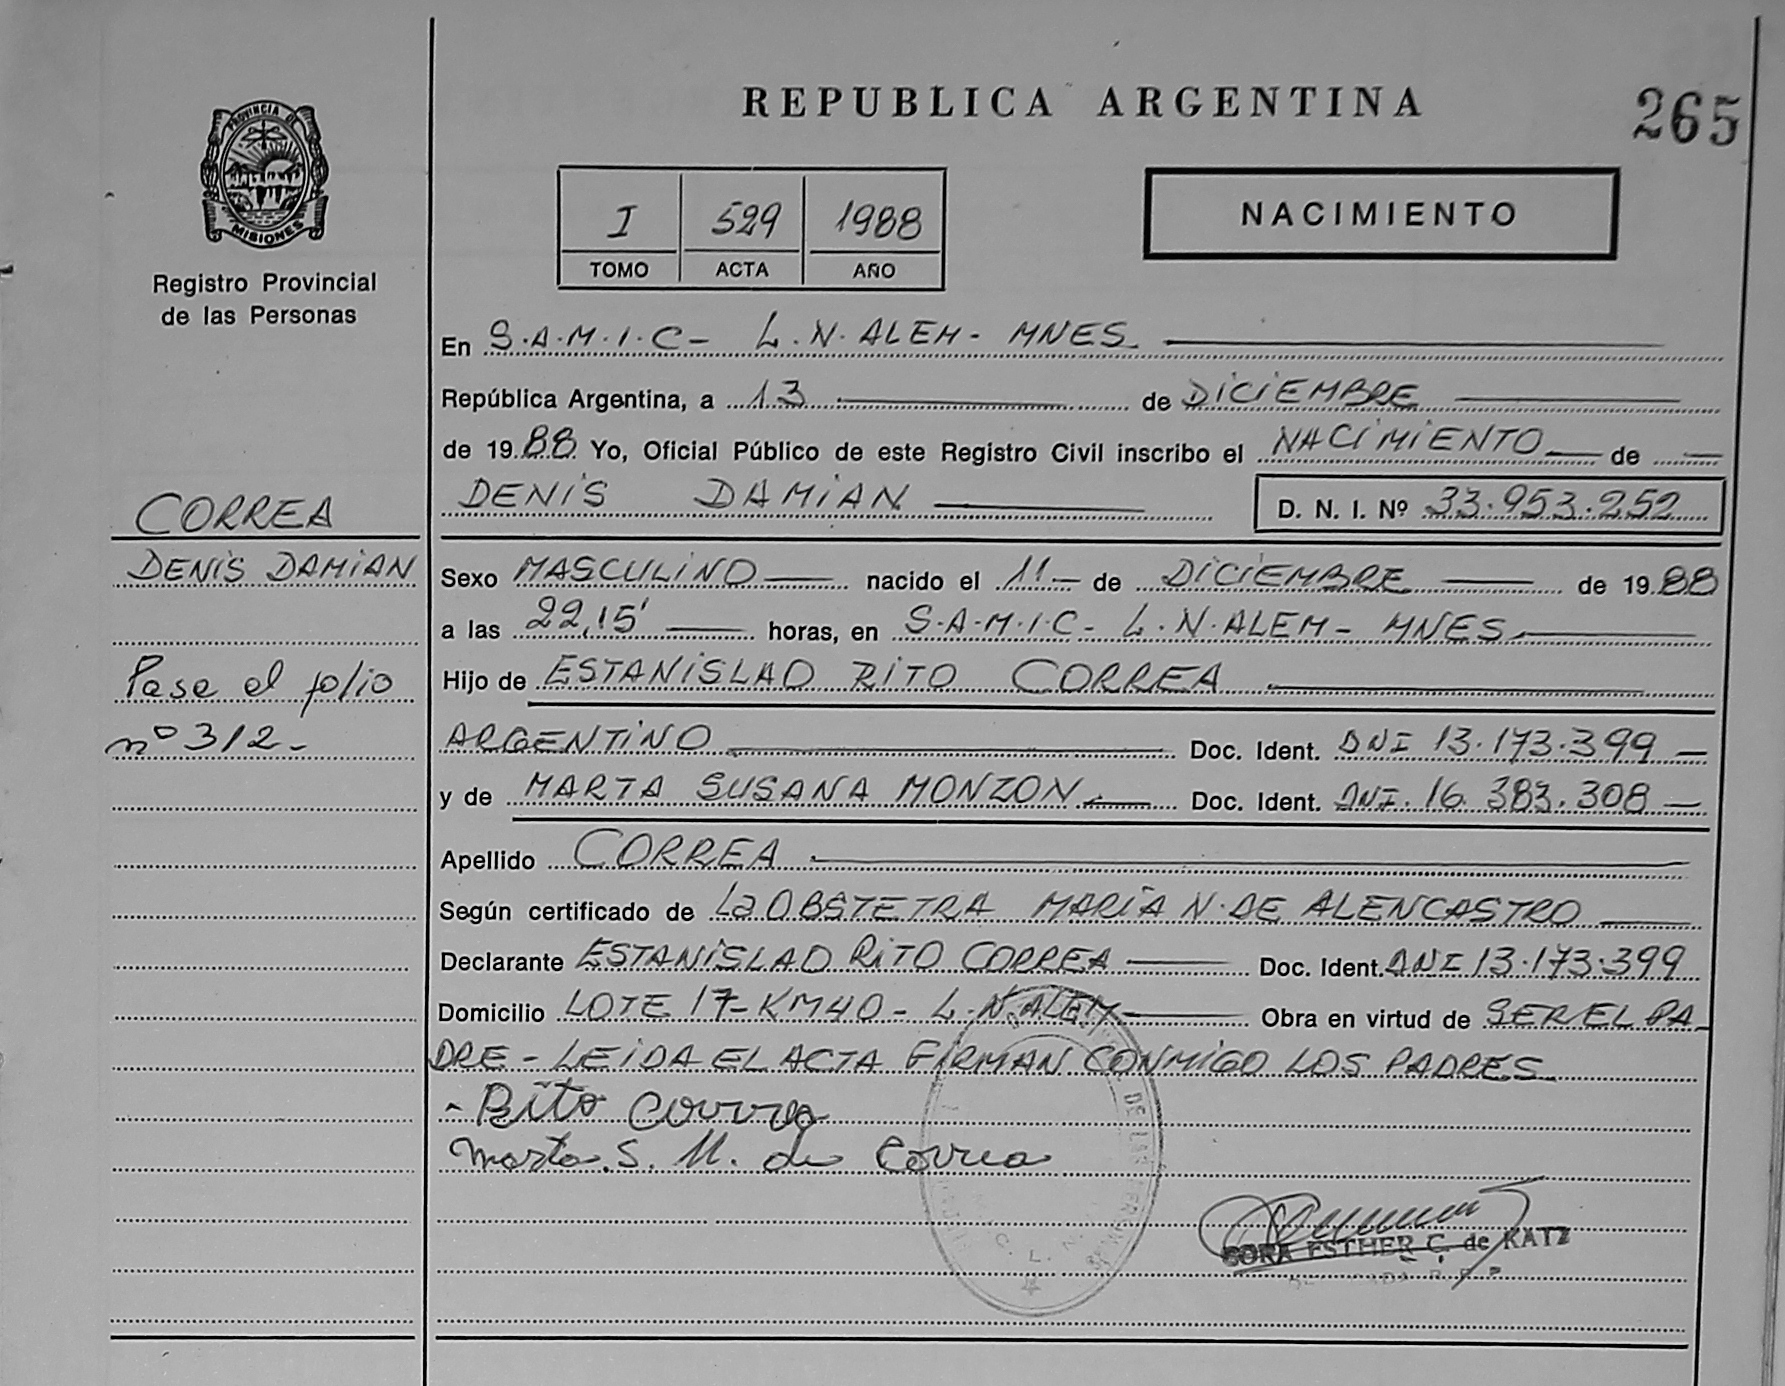 REPUBLICA ARGENTINA
265
PROVINCIA DE
MISIONES
Registro Provincial
de las Personas
I 529 1988
TOMO ACTA AÑO
NACIMIENTO
En S.A.M.I.C- L.N.ALEM- MNES.
República Argentina, a 13 de DICIEMBRE
de 1988 Yo, Oficial Público de este Registro Civil inscribo el NACIMIENTO de
DENIS DAMIAN D. N. I. Nº 33.953.252
CORREA
DENIS DAMIAN
Pase al folio
nº 312-
Sexo MASCULINO nacido el 11 de DICIEMBRE de 1988
a las 22,15' horas, en S.A.M.I.C- L.N.ALEM- MNES.
Hijo de ESTANISLAO RITO CORREA
ARGENTINO Doc. Ident. DNI 13.173.399
y de MARTA SUSANA MONZON Doc. Ident. DNI. 16.383.308
Apellido CORREA
Según certificado de La OBSTETRA MARIA N. DE ALENCASTRO
Declarante ESTANISLAO RITO CORREA Doc. Ident. DNI 13.173.399
Domicilio LOTE 17-KM40- L.N.ALEM Obra en virtud de SER EL PA
DRE - LEIDA EL ACTA FIRMAN CONMIGO LOS PADRES
- Rito Correa
Marta S. M. de Correa
DE LAS
C. L. N.
DORA ESTHER C. de KATZ